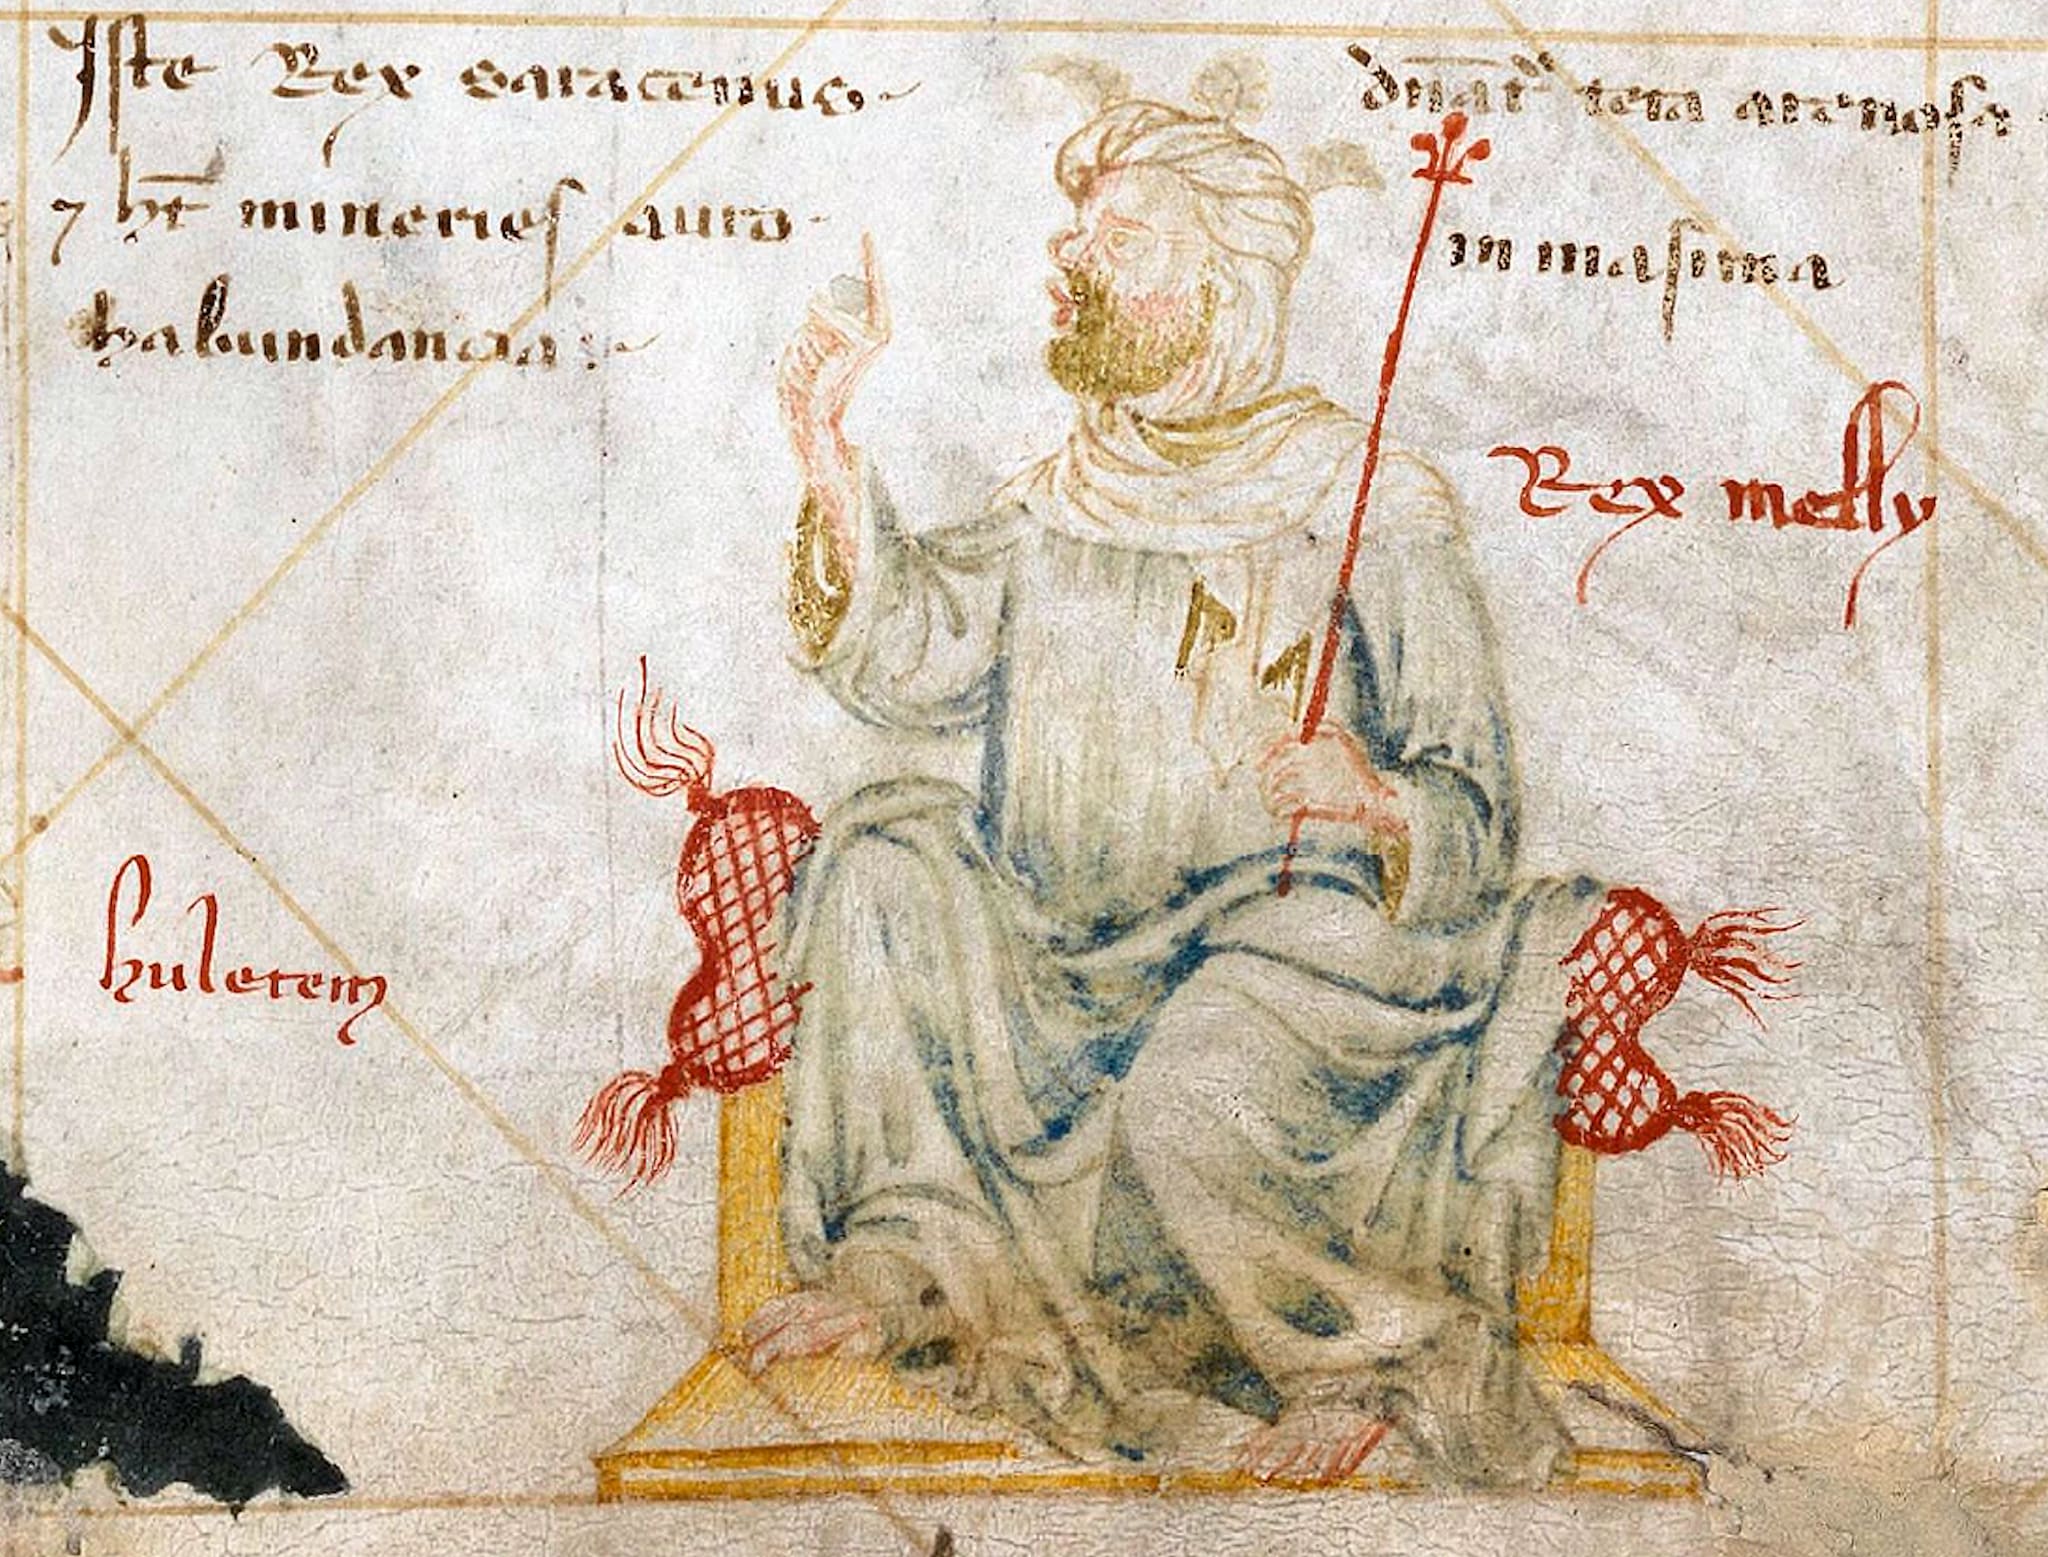 Iste Rex saracenus
⁊ ht mineries auro
habundancia
dnat tera arenosa
in maxima
Rex melly
huletem